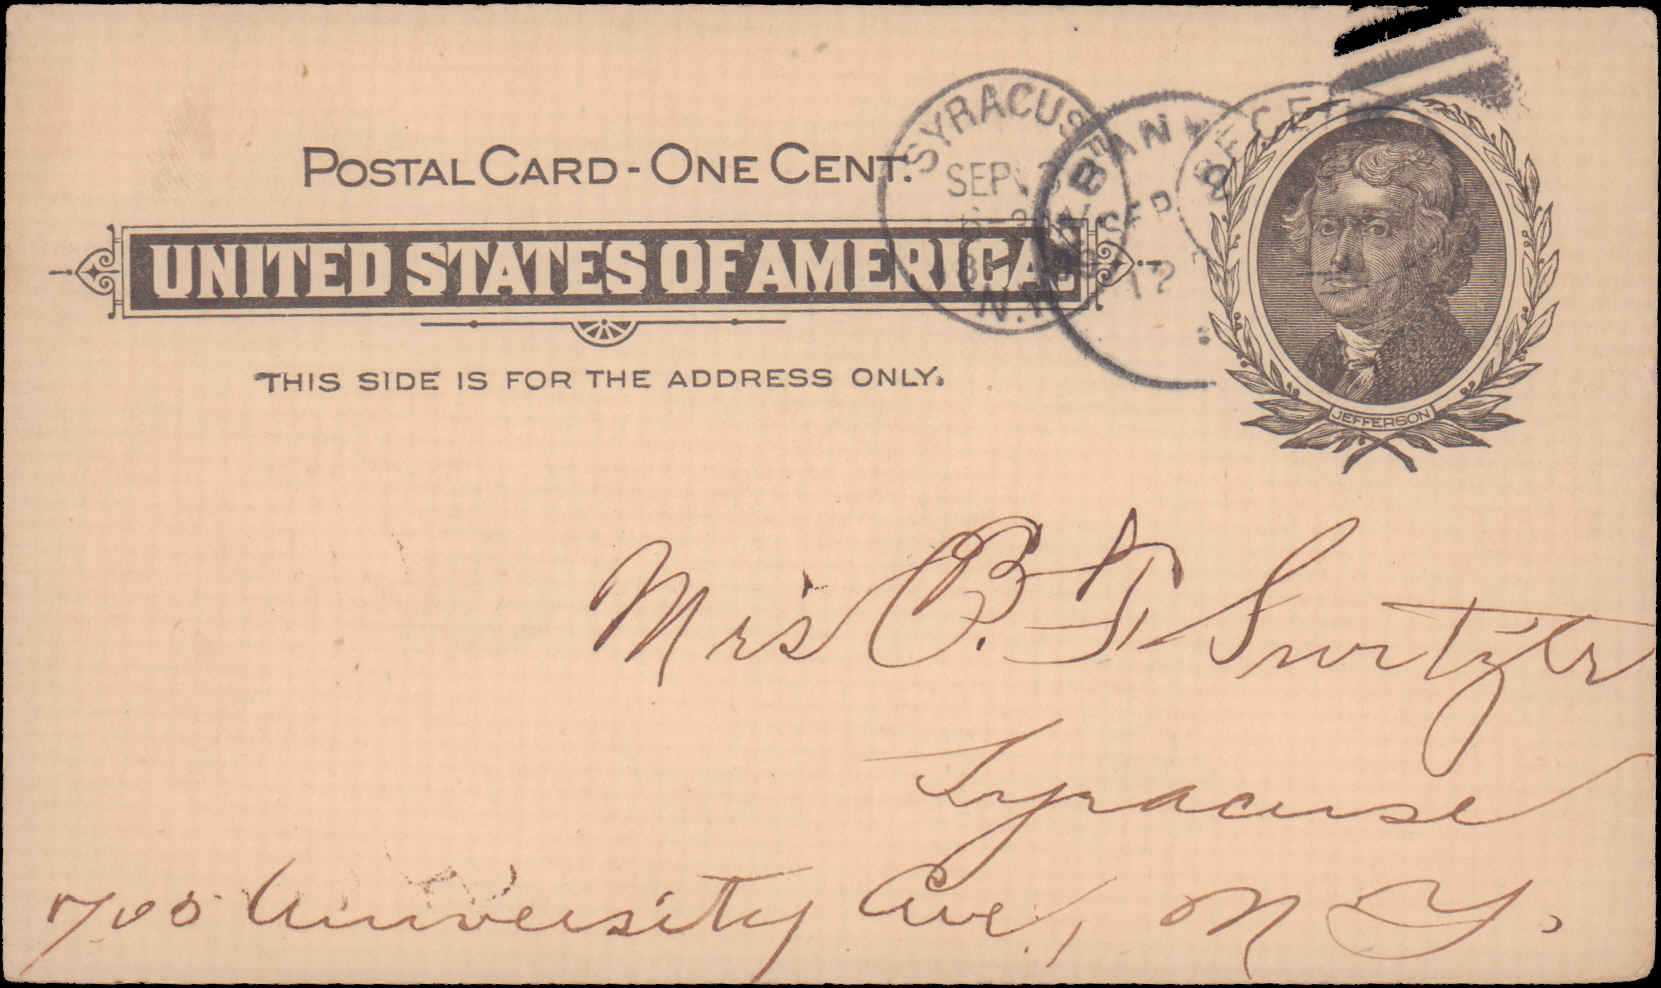 POSTAL CARD - ONE CENT.
UNITED STATES OF AMERICA
THIS SIDE IS FOR THE ADDRESS ONLY.
SYRACUSE
SEP
N.Y.
JEFFERSON
Mrs B. F. Switzer
Syracuse
700 University Ave, N Y.